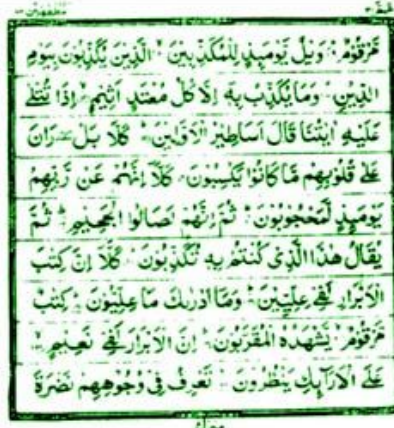 مَّرْقُوْمٌ وَيْلٌ يَّوْمَىِٕذٍ لِّلْمُكَذِّبِيْنَ الَّذِيْنَ يُكَذِّبُوْنَ بِيَوْمِ
الدِّيْنِ وَمَا يُكَذِّبُ بِهٖ اِلَّا كُلُّ مُعْتَدٍ اَثِيْمٍ اِذَا تُتْلٰى
عَلَيْهِ اٰيٰتُنَا قَالَ اَسَاطِيْرُ الْاَوَّلِيْنَ كَلَّا بَلْ رَانَ
عَلٰى قُلُوْبِهِمْ مَّا كَانُوْا يَكْسِبُوْنَ كَلَّا اِنَّهُمْ عَنْ رَّبِّهِمْ
يَوْمَىِٕذٍ لَّمَحْجُوْبُوْنَ ثُمَّ اِنَّهُمْ لَصَالُوا الْجَحِيْمِ ثُمَّ
يُقَالُ هٰذَا الَّذِيْ كُنْتُمْ بِهٖ تُكَذِّبُوْنَ كَلَّا اِنَّ كِتٰبَ
الْاَبْرَارِ لَفِيْ عِلِّيِّيْنَ وَمَا اَدْرٰىكَ مَا عِلِّيُّوْنَ كِتٰبٌ
مَّرْقُوْمٌ يَّشْهَدُهُ الْمُقَرَّبُوْنَ اِنَّ الْاَبْرَارَ لَفِيْ نَعِيْمٍ
عَلَى الْاَرَآىِٕكِ يَنْظُرُوْنَ تَعْرِفُ فِيْ وُجُوْهِهِمْ نَضْرَةَ